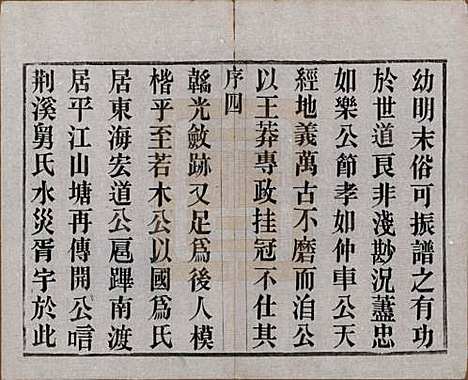 幼明末俗可振譜之有功
於世道良非淺尠況藎忠
如樂公節孝如仲車公天
經地義萬古不磨而洎公
以王莽專政挂冠不仕其
序四
韜光斂跡又足爲後人模
楷乎至若木公以國爲氏
居東海宏道公扈蹕南渡
居平江山塘再傳開公唁
荆溪舅氏水災胥宇於此